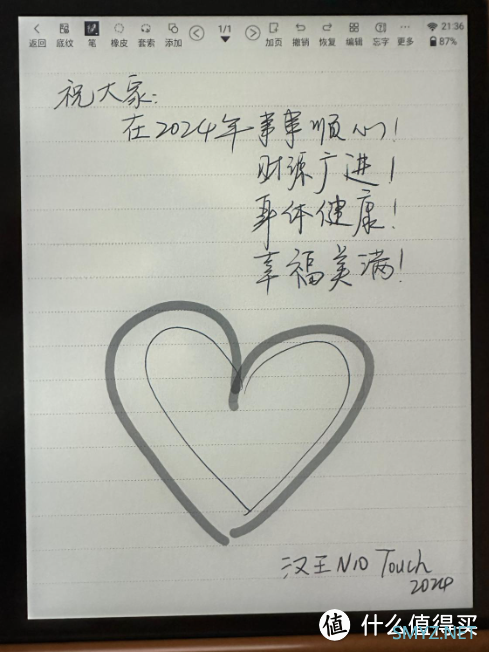 1/1
21:36
返回 底纹 笔 橡皮 套索 添加 加页 撤销 恢复 编辑 忘字 更多 87%
祝大家:
在2024年事事顺心!
财源广进!
身体健康!
幸福美满!
汉王N10 Touch
2024
值 什么值得买
SMYZ.NET